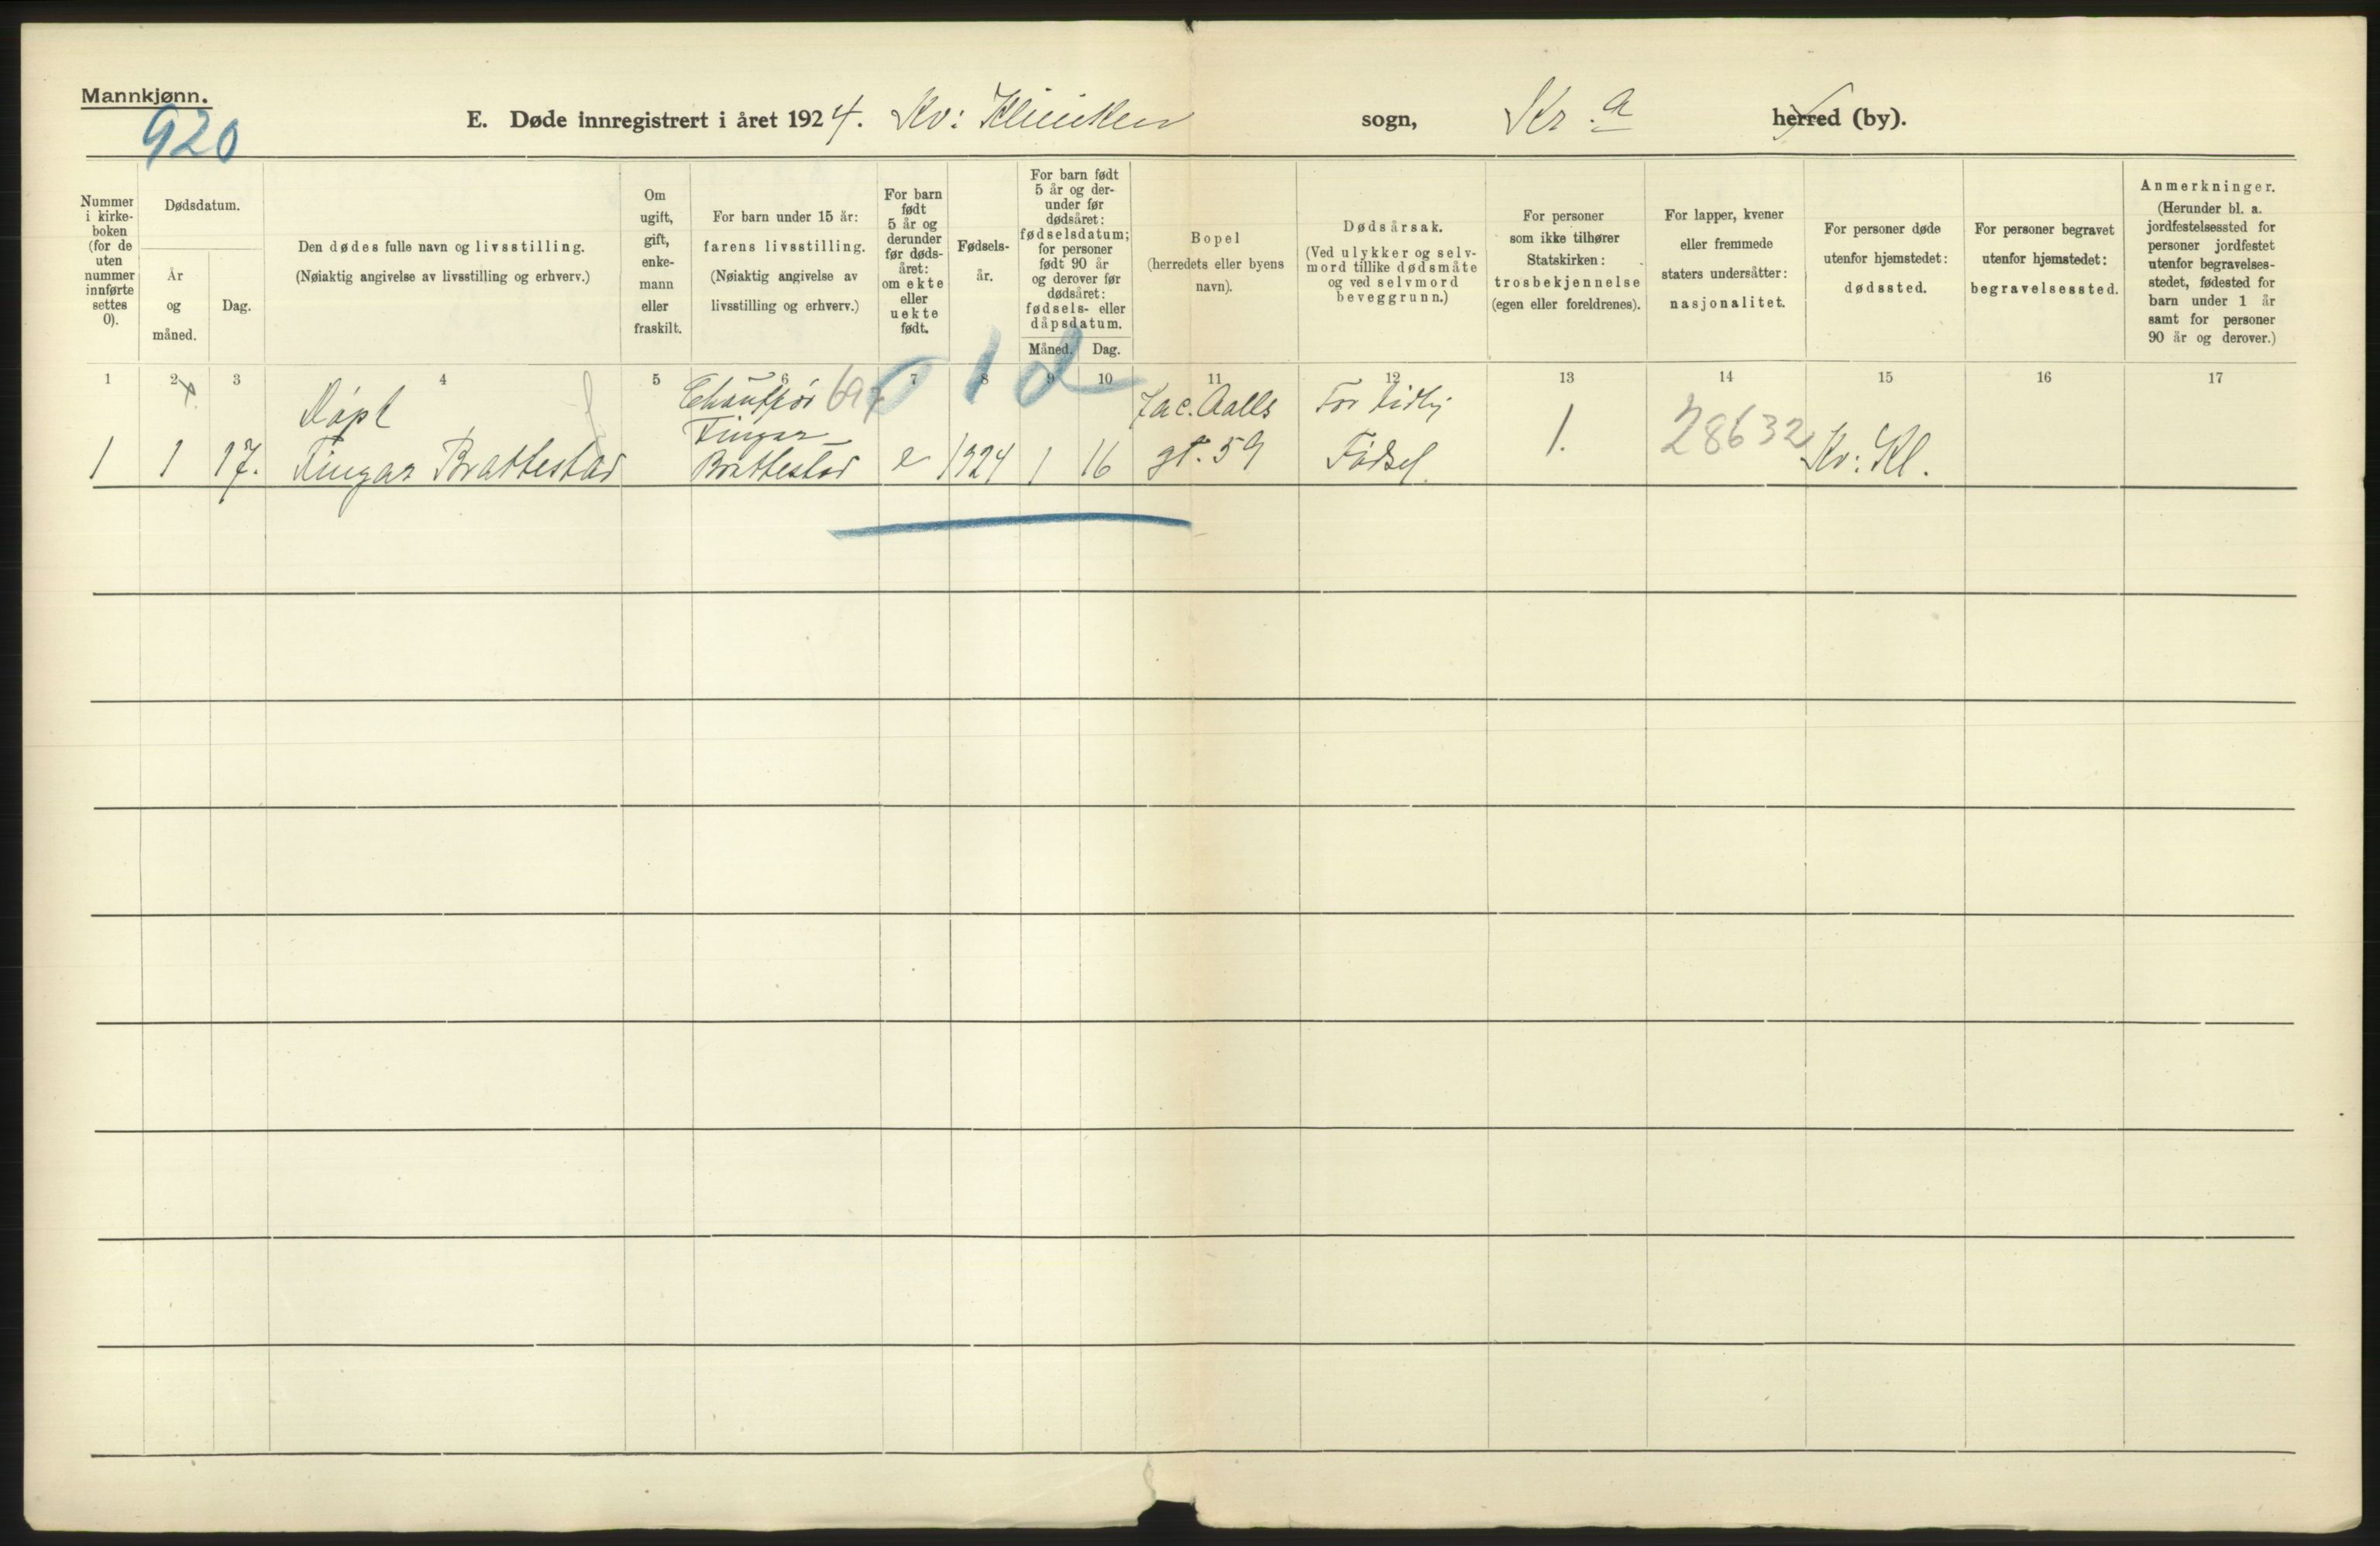 Mannkjønn.
920
E. Døde innregistrert i året 1924. Kv: Kliniken sogn, Kr.a herred (by).
Nummer i kirke- boken (for de uten nummer innførte settes 0).
Dødsdatum.
År og måned.
Dag.
Den dødes fulle navn og livsstilling.
(Nøiaktig angivelse av livsstilling og erhverv.)
Om ugift, gift, enke- mann eller fraskilt.
For barn under 15 år:
farens livsstilling.
(Nøiaktig angivelse av
livsstilling og erhverv.)
For barn født 5 år og derunder før døds- året: om ekte eller uekte født.
Fødsels- år.
For barn født 5 år og der- under før dødsåret: fødselsdatum; for personer født 90 år og derover før dødsåret: fødsels- eller dåpsdatum.
Måned.
Dag.
Bopel
(herredets eller byens
navn).
Dødsårsak.
(Ved ulykker og selv-
mord tillike dødsmåte
og ved selvmord
beveggrunn.)
For personer
som ikke tilhører
Statskirken:
trosbekjennelse
(egen eller foreldrenes).
For lapper, kvener
eller fremmede
staters undersåtter:
nasjonalitet.
For personer døde
utenfor hjemstedet:
dødssted.
For personer begravet
utenfor hjemstedet:
begravelsessted.
Anmerkninger.
(Herunder bl. a.
jordfestelsessted for
personer jordfestet
utenfor begravelses-
stedet, fødested for
barn under 1 år
samt for personer
90 år og derover.)
1 2 3 4 5 6 7 8 9 10 11 12 13 14 15 16 17
1 1 17.
Døpt
Fingar Brattestad
Chauffør
Fingar
Brattestad
e 1924 1 16
Jac. Aalls
gt. 59
For tidlig
Fødsel.
1.
28632
Kv: Kl.